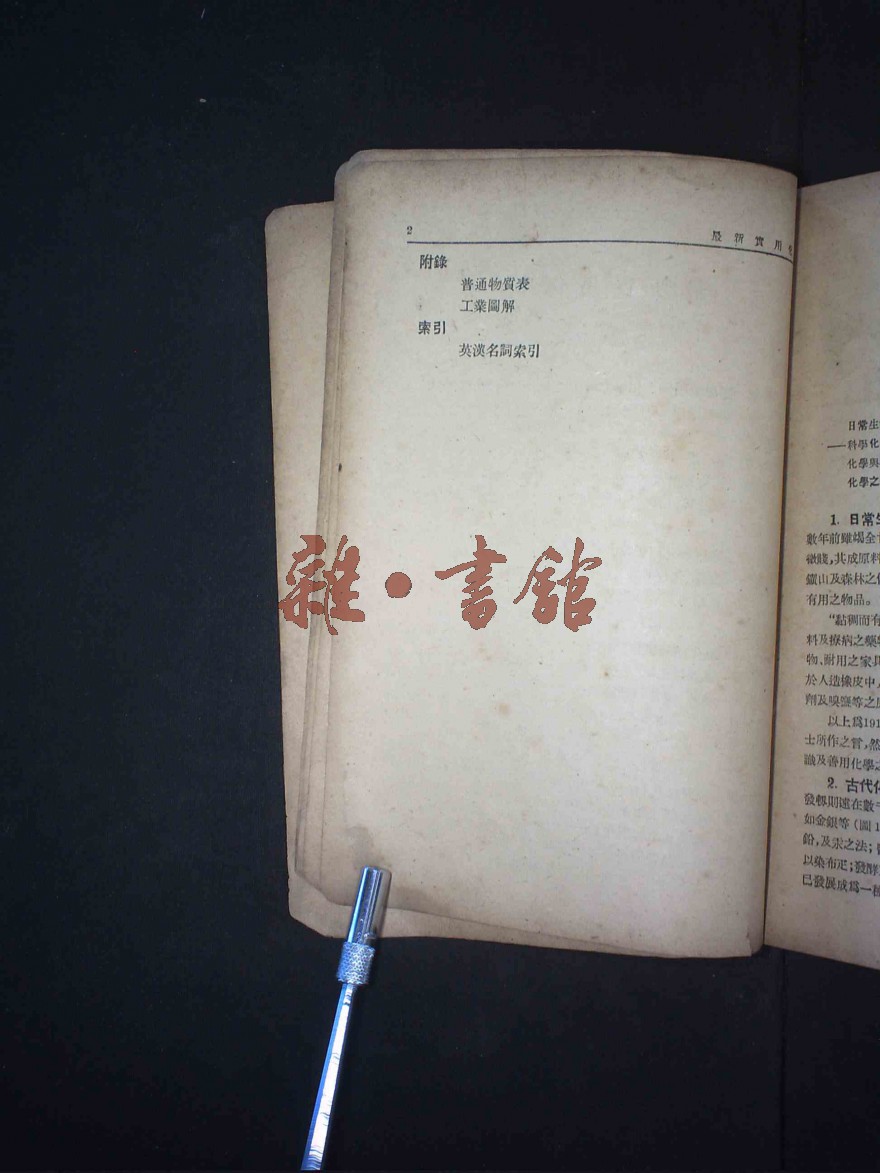 2
最新實用
附錄
普通物質表
工業圖解
索引
英漢名詞索引
雜·書館
日常生
——科學化
化學與
化學之
1. 日常生
數年前雖竭全
微賤,其成原料
鑛山及森林之
有用之物品。
“黏稠而有
料及療病之藥
物、耐用之家具
於人造橡皮中,
劑及嗅鹽等之
以上爲191
士所作之言,然
識及善用化學之
2. 古代化
發軔則遠在數千
如金銀等(圖1
鉛,及汞之法;
以染布疋;發酵
已發展成爲一種